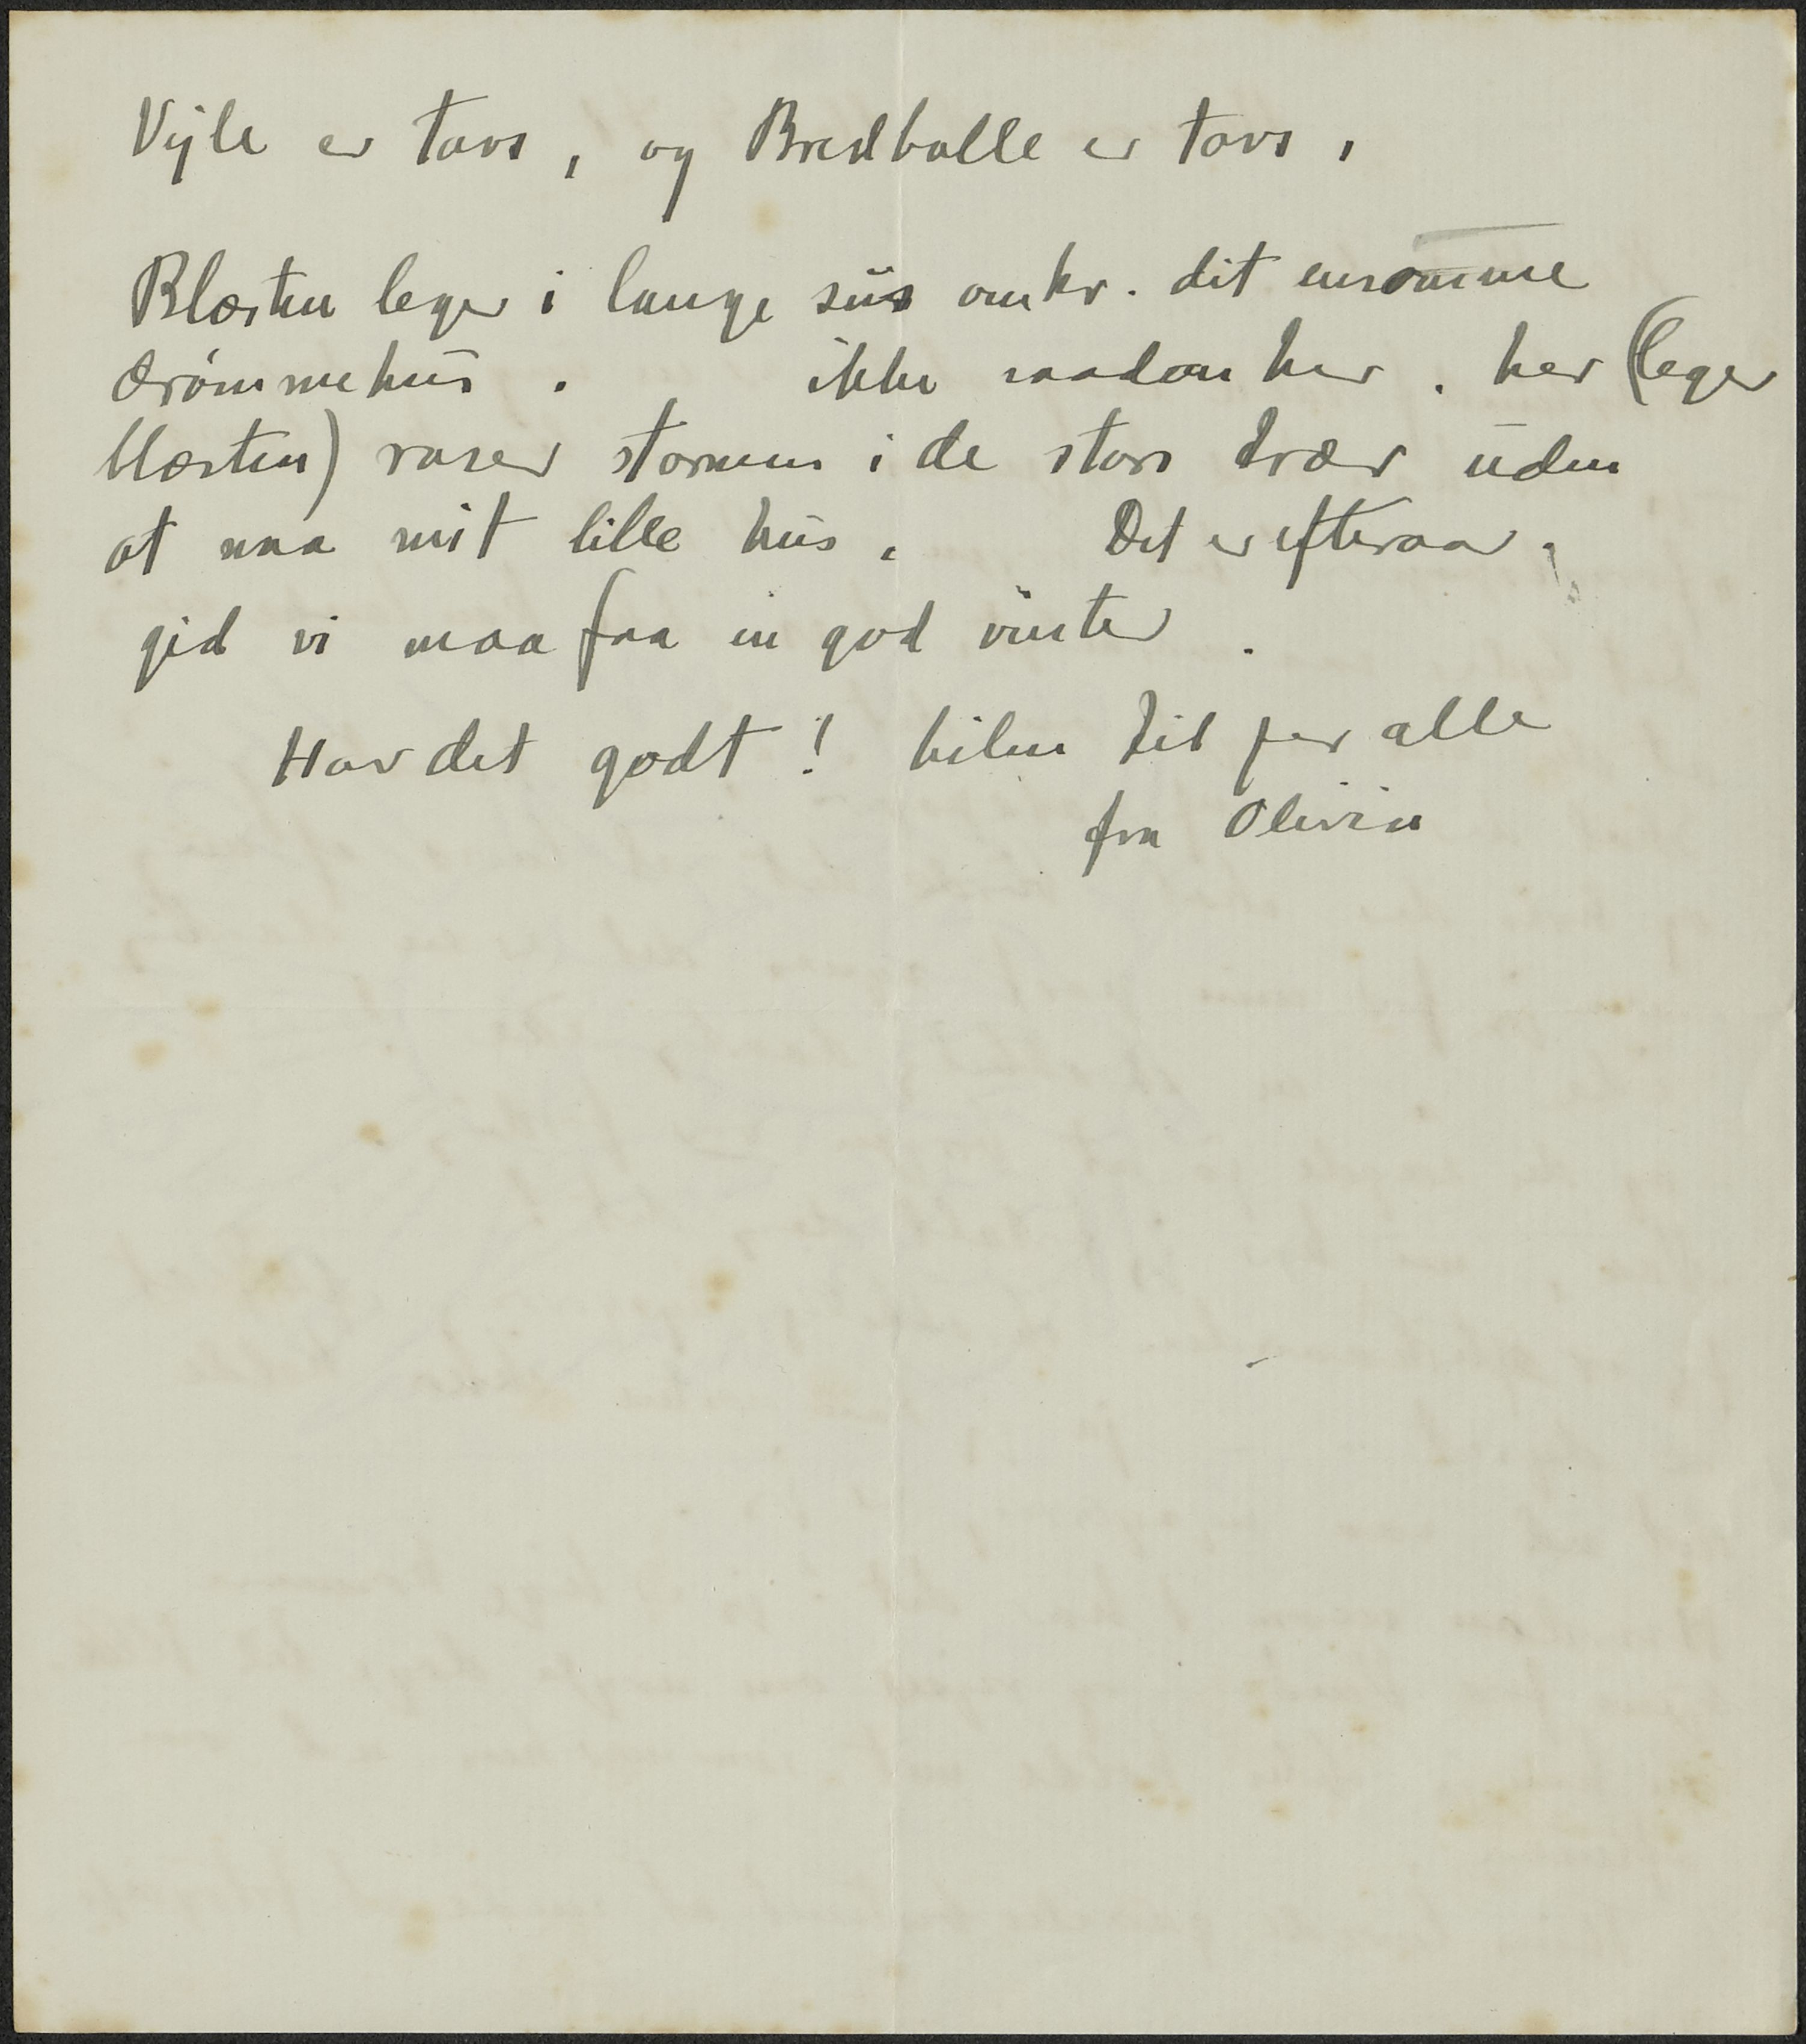 Vejle er tavs, og Bredballe er tavs.
Blæsten leger i lange sus omkr. dit ensomme
drømmehus. ikke saadan her. her (leger
blæsten) raser stormen i de store træer uden
at naa mit lille hus. Det er efteraar.
gid vi maa faa en god vinter.
Hav det godt! hilsen til jer alle
fra Olivia